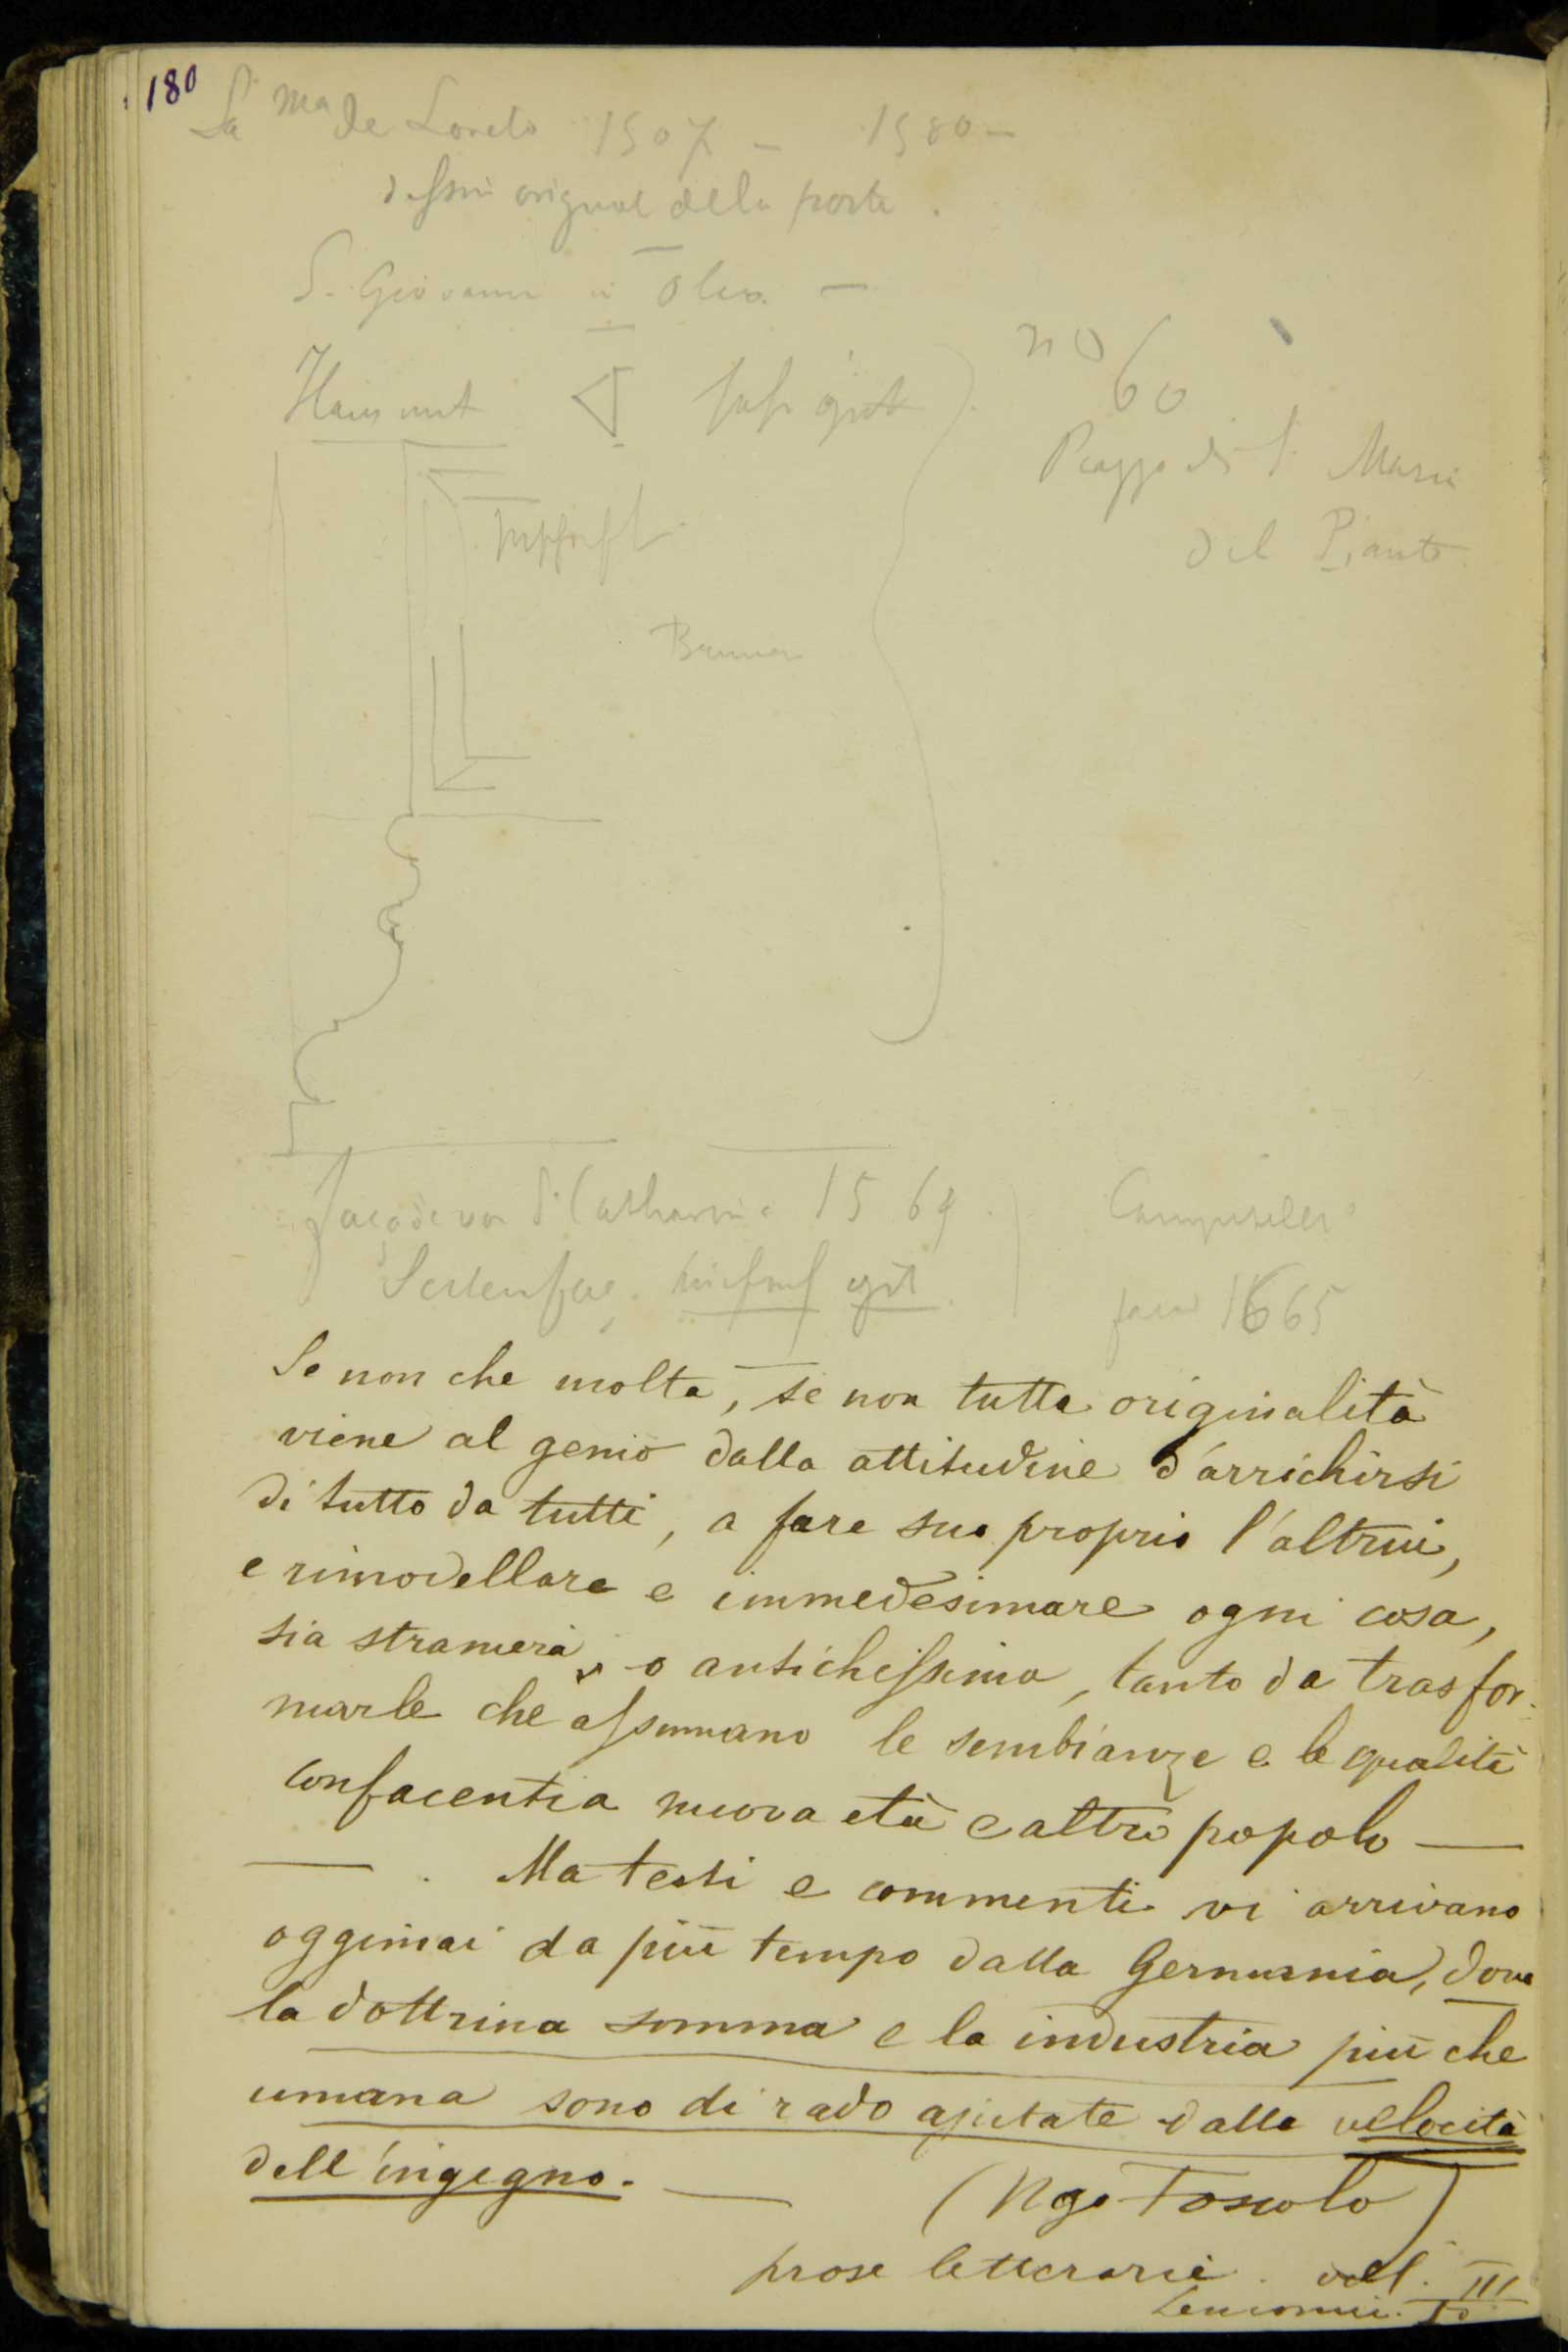 180
Sa Ma de Loreto 1507 - 1580 -
original della porta.
S. Giovanni in Oleo -
Haus mit sehr gut
no 60
Piazza di S. Maria
del Pianto
Inschrift
Façade von S. Catharina 1564
gut
1665
Se non che molta, se non tutta originalità
viene al genio dalla attitudine d'arrichirsi
di tutto da tutti, a fare suo proprio l'altrui,
e rimodellare e immedesimare ogni cosa,
sia straniera, o antichissima, tanto da trasfor-
marle che assumano le sembianze e le qualità
confacenti a nuova età e altro popolo —
— . Ma testi e commenti vi arrivano
oggimai da più tempo dalla Germania, dove
la dottrina somma e la industria più che
umana sono di rado ajutate dalla velocità
dell'ingegno. — (Ugo Foscolo)
prose letterarie. vol. III